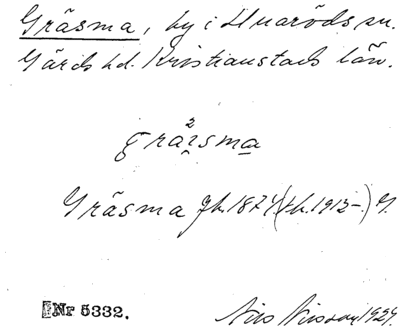 Gräsma, by i Huaröds sn.
Gärds hd. Kristianstads län.
gräsma
Gräsma Jb. 1874 (th. 1912-) G.
Nr 5332.
Nils Nilsson 1929.